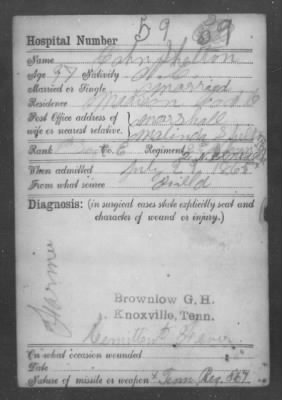 59 59
Hospital Number
Name Shelton
Age 57 Nativity N.C.
Married or Single married
Residence Madison Co N.C
Post Office address of
wife or nearest relative, } Marshall
Malinda Shelton
Rank Co. E Regiment
When admitted July 29 1865
From what source Field
Diagnosis: (in surgical cases state explicitly seat and
character of wound or injury.)
Farmer
Brownlow G. H.
Knoxville, Tenn.
Remittent Fever
On what occasion wounded
Date
Nature of missile or weapon Tenn Reg. 467